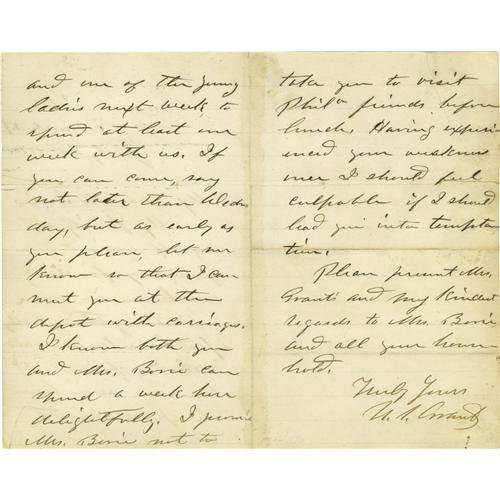 and one of the young
ladies next week, to
spend at least one
week with us. If
you can come, say
not later than Wednes
day, but as early as
you please, let me
know so that I can
meet you at the
depot with carriages.
I know both you
and Mrs. Borie can
spend a week here
delightfully. I promise
Mrs. Borie not to
take you to visit
Phila friends before
lunch. Having experi
enced your weakness
once I should feel
culpable if I should
lead you into tempta
tion.
Please present Mrs.
Grant's and my kindest
regards to Mrs. Borie
and all your house
hold.
Truly Yours
U. S. Grant